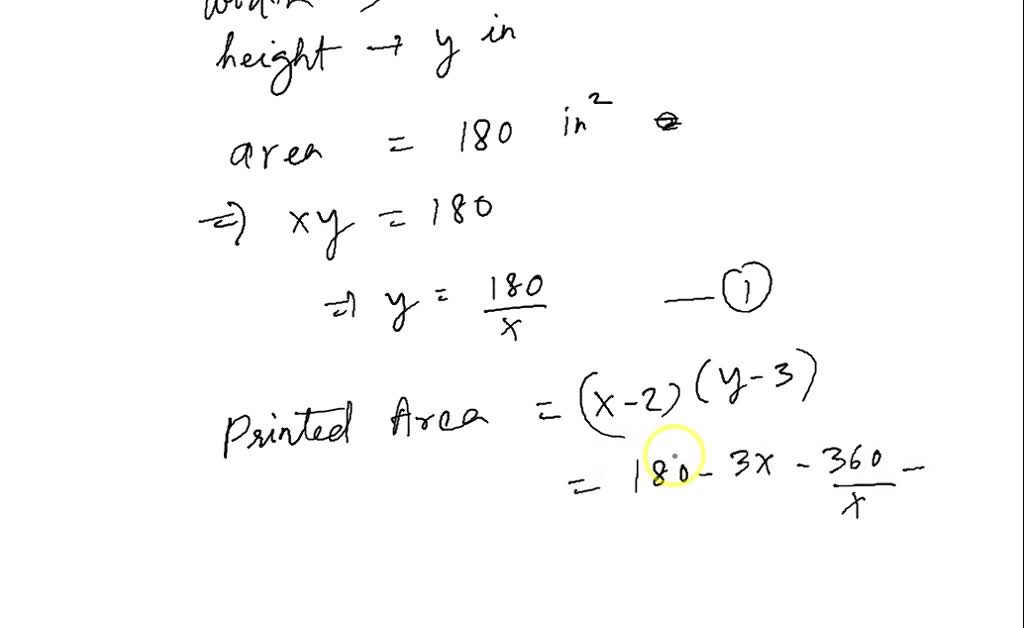 height → y in
area = 180 in²
⇒ xy = 180
⇒ y = 180/x — ①
Printed Area = (x-2)(y-3)
= 180 - 3x - 360/x -